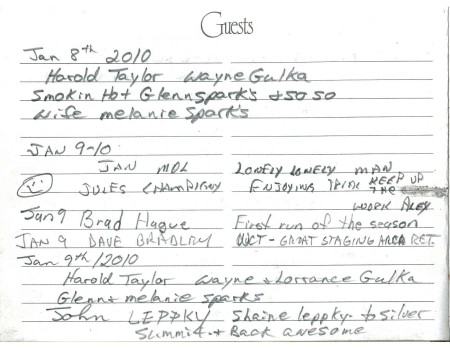 Guests
Jan 8th 2010
Harold Taylor Wayne Gulka
Smokin Hot Glenn Spark's & So So
Wife melanie Spark's
JAN 9-10
JAN MDL LONELY LONELY MAN
JULES CHAMPIGNY ENJOYING KEEP UP THE
WORK ALEX
Jan 9 Brad Hague First run of the season
JAN 9 DAVE BRADLEY - GREAT STAGING AREA RET.
Jan 9th/2010
Harold Taylor Wayne & Lorrance Gulka
Glenn & melanie Sparks
John LEPPKY Shaine Leppky. to Silver
Summit. & Back awesome